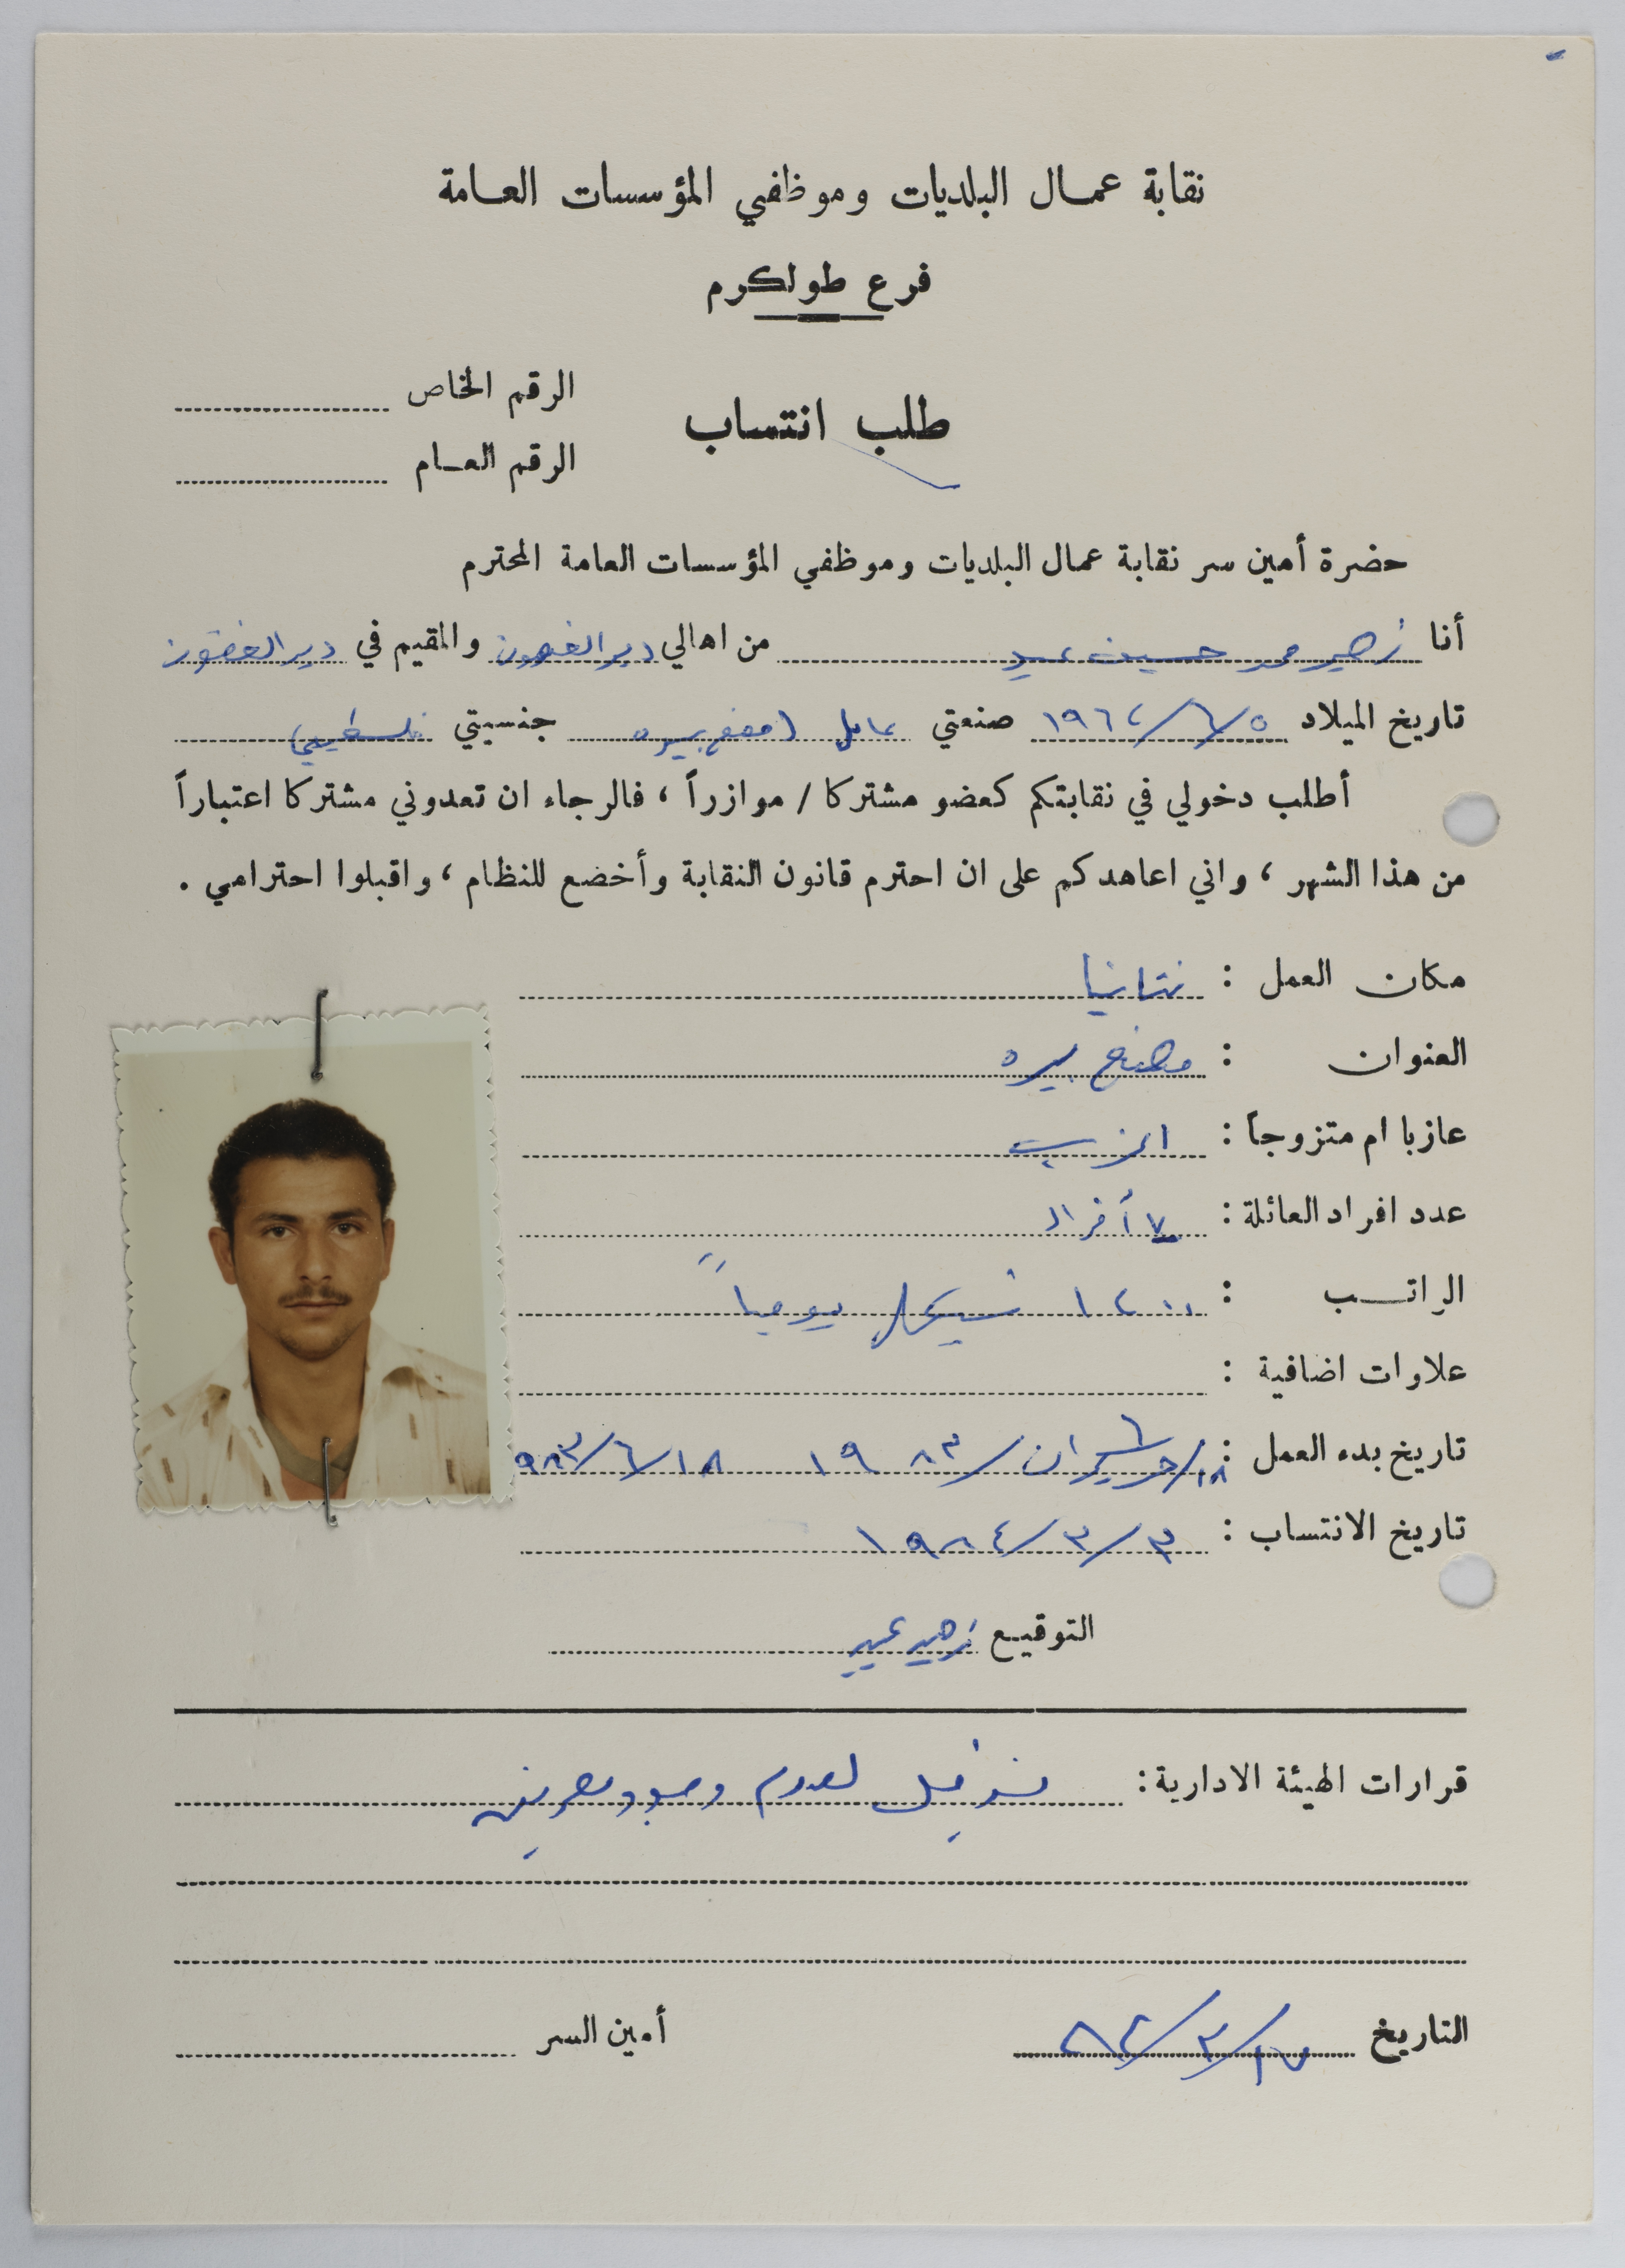 نقابة عمال البلديات وموظفي المؤسسات العامة
فرع طولكرم
الرقم الخاص
طلب انتساب
الرقم العام
حضرة أمين سر نقابة عمال البلديات وموظفي المؤسسات العامة المحترم
أنا زهير محمد حسين عبد من اهالي دير الغصون والمقيم في دير الغصون
تاريخ الميلاد ٥/٦/١٩٦٢ صنعتي عامل (مصنع بيره جنسيتي فلسطيني
أطلب دخولي في نقابتكم كعضو مشتركا / موازراً ، فالرجاء ان تعدوني مشتركا اعتباراً
من هذا الشهر ، واني اعاهدكم على ان احترم قانون النقابة وأخضع للنظام ، واقبلوا احترامي .
مكان العمل : نتانيا
العنوان : مصنع بيره
عازبا ام متزوجاً : اعزب
عدد افراد العائلة : ٧ أفراد
الراتب : ١٢٠٠ شيكل يومياً
علاوات اضافية :
تاريخ بدء العمل : ١٨/حزيران/ ١٩٨٣ ١٨/٦/٩٨٣
تاريخ الانتساب : ٣/٣/١٩٨٤
التوقيع زهير عبد
قرارات الهيئة الادارية : لعدم وجود
التاريخ ١٧/٣/٨٤
أمين السر